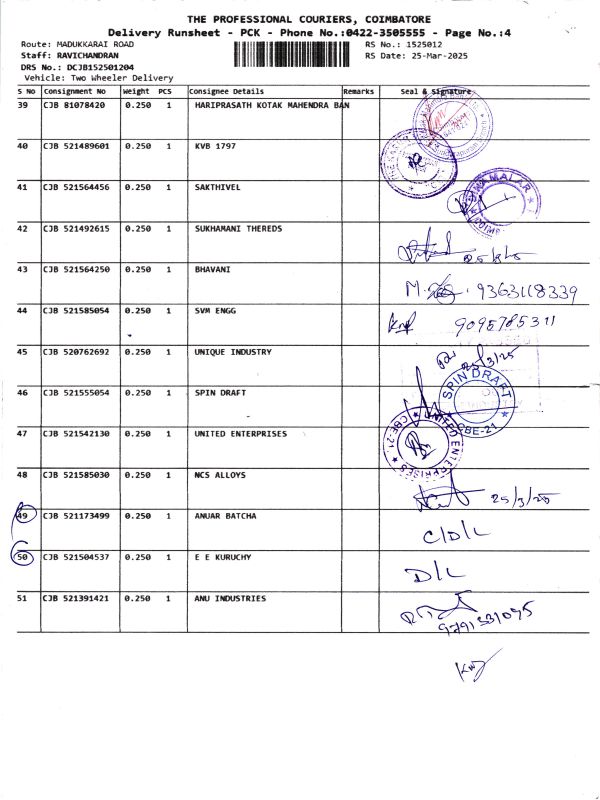 THE PROFESSIONAL COURIERS, COIMBATORE
Delivery Runsheet - PCK - Phone No.:0422-3505555 - Page No.:4
Route: MADUKKARAI ROAD RS No.: 1525012
Staff: RAVICHANDRAN RS Date: 25-Mar-2025
DRS No.: DCJB152501204
Vehicle: Two Wheeler Delivery
S No Consignment No Weight PCS Consignee Details Remarks Seal & Signature
39 CJB 81078420 0.250 1 HARIPRASATH KOTAK MAHENDRA BAN
40 CJB 521489601 0.250 1 KVB 1797
41 CJB 521564456 0.250 1 SAKTHIVEL
MALAR
42 CJB 521492615 0.250 1 SUKHAMANI THEREDS
25/3/25
43 CJB 521564250 0.250 1 BHAVANI
9363118339
44 CJB 521585054 0.250 1 SVM ENGG
9095785311
45 CJB 520762692 0.250 1 UNIQUE INDUSTRY
46 CJB 521555054 0.250 1 SPIN DRAFT
SPIN DRAFT
CBE-21
47 CJB 521542130 0.250 1 UNITED ENTERPRISES
UNITED ENTERPRISES
CBE-21
48 CJB 521585030 0.250 1 NCS ALLOYS
25/3/25
49 CJB 521173499 0.250 1 ANUAR BATCHA
C/D/L
50 CJB 521504537 0.250 1 E E KURUCHY
D/L
51 CJB 521391421 0.250 1 ANU INDUSTRIES